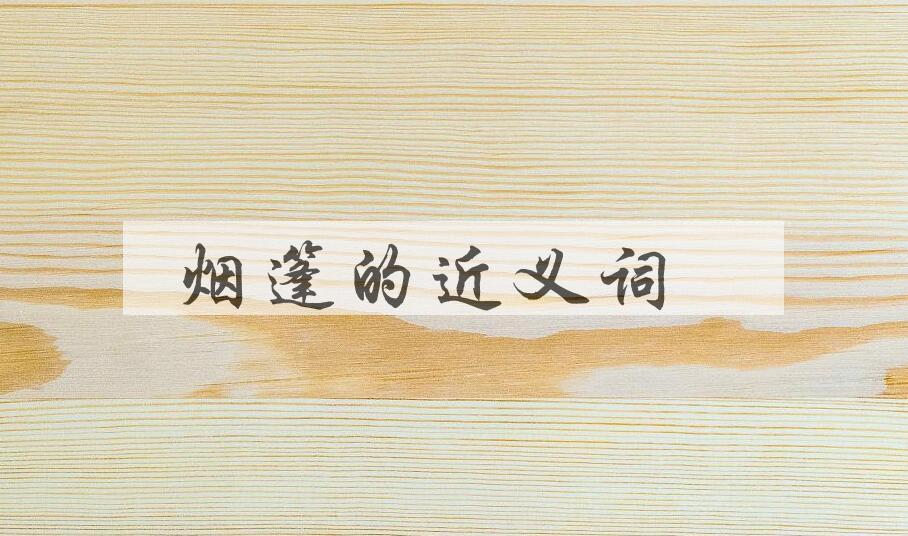 烟篷的近义词